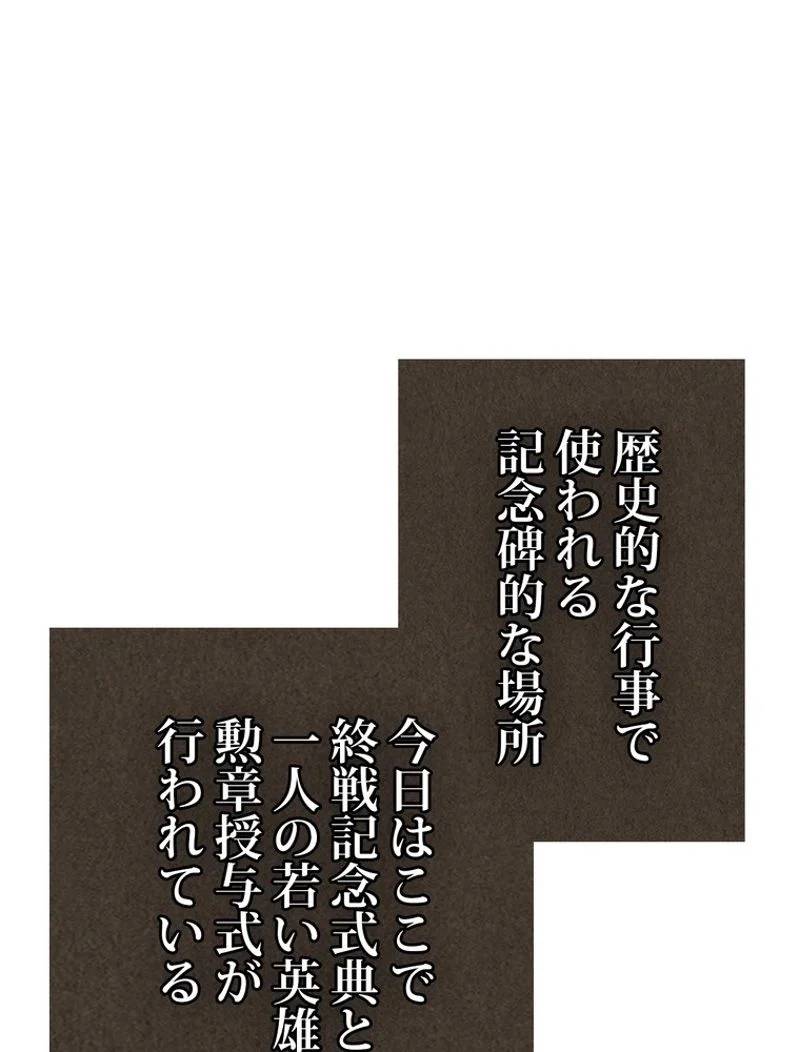 歴史的な行事で
使われる
記念碑的な場所
今日はここで
終戦記念式典と
一人の若い英雄
勲章授与式が
行われている